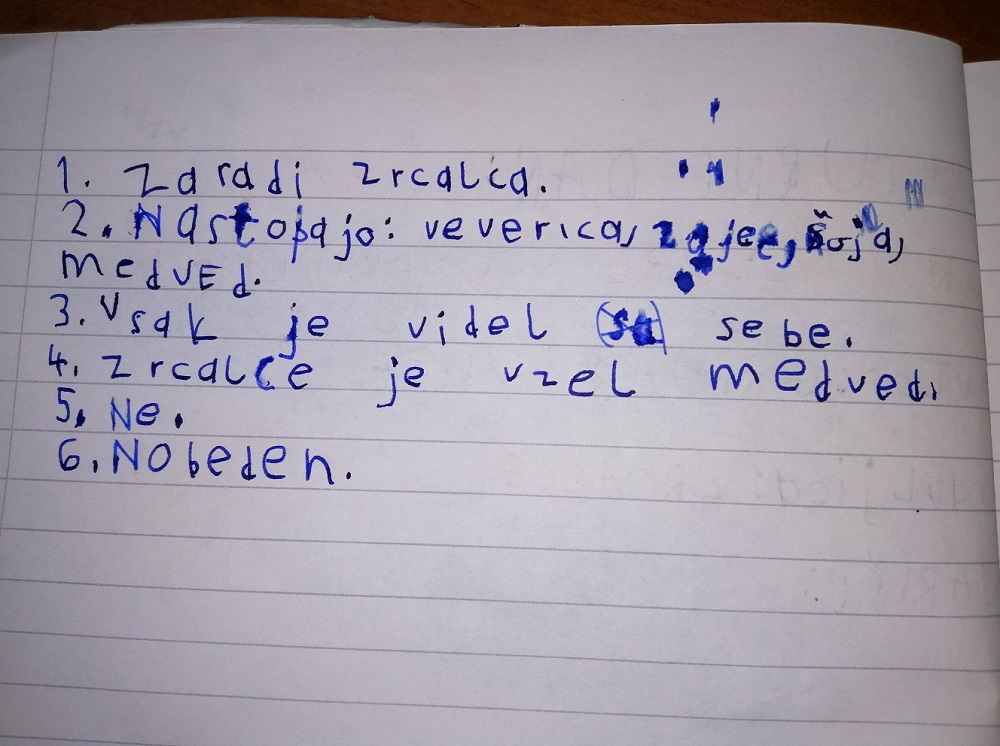 1. Zaradi zrcalca.
2. Nastopajo: veverica, zajec, šoja,
medved.
3. Vsak je videl (sa) sebe.
4. Zrcalce je vzel medved.
5. Ne.
6. Nobeden.